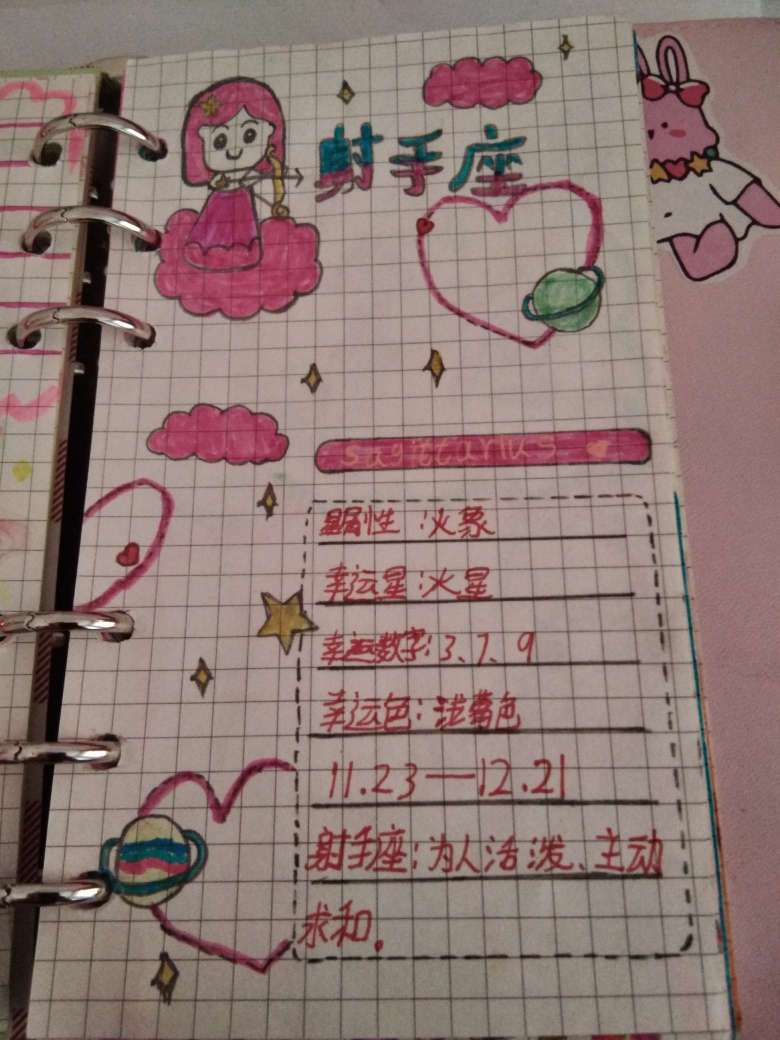 射手座
sagittarius
属性：火象
幸运星：火星
幸运数字：3、7、9
幸运色：浅黄色
11.23—12.21
射手座：为人活泼、主动
求和.